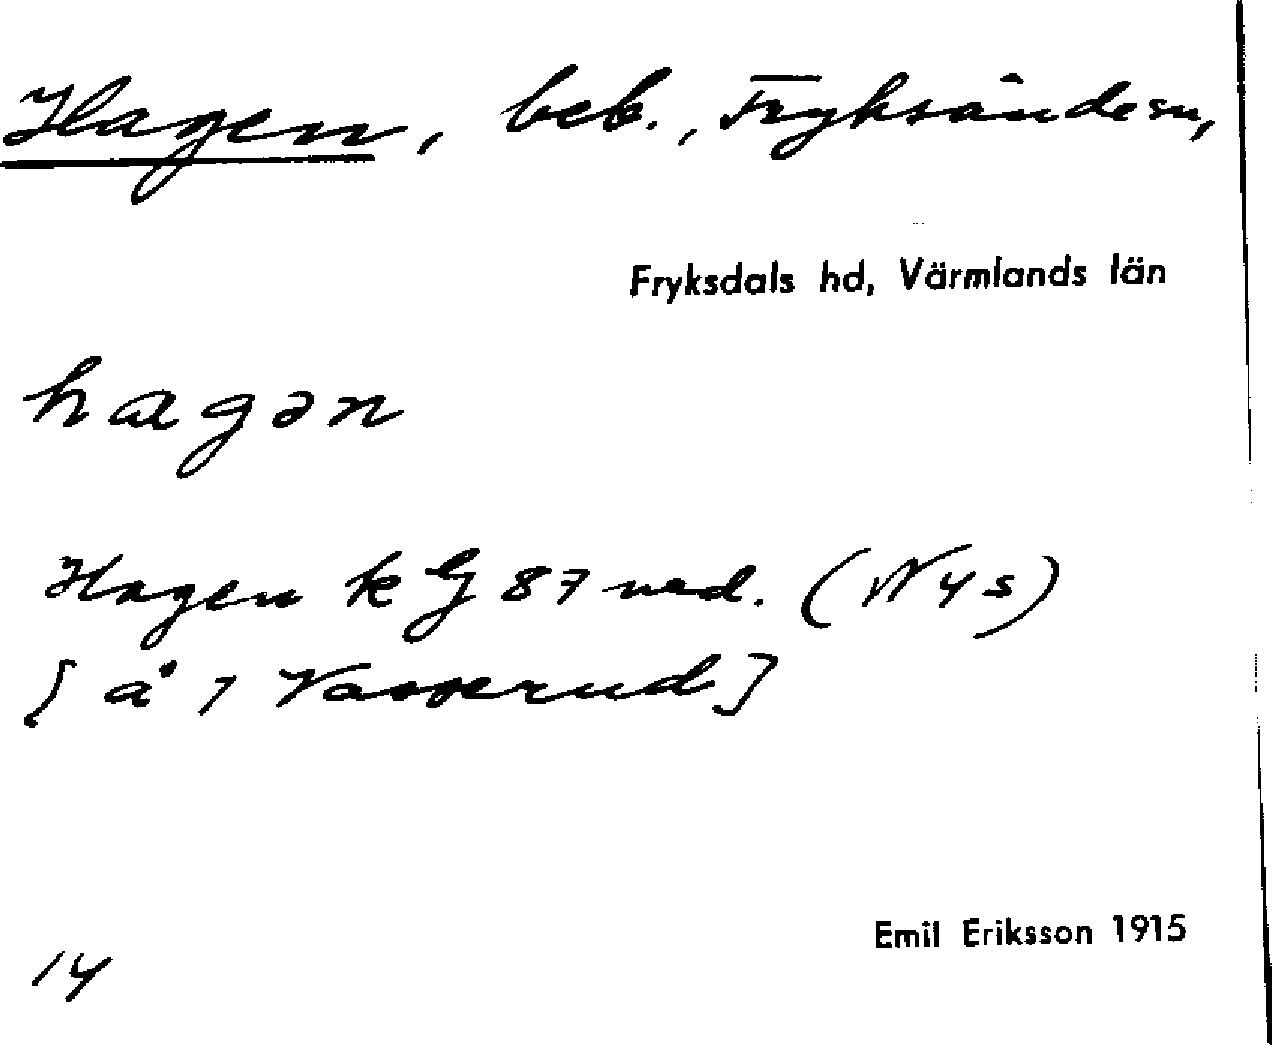 Hagen, beb., Fryksände sn,
Fryksdals hd, Värmlands län
hagən
Hagen k G 87 ned. (W 4 s)
[å 1 Vasserud]
Emil Eriksson 1915
14